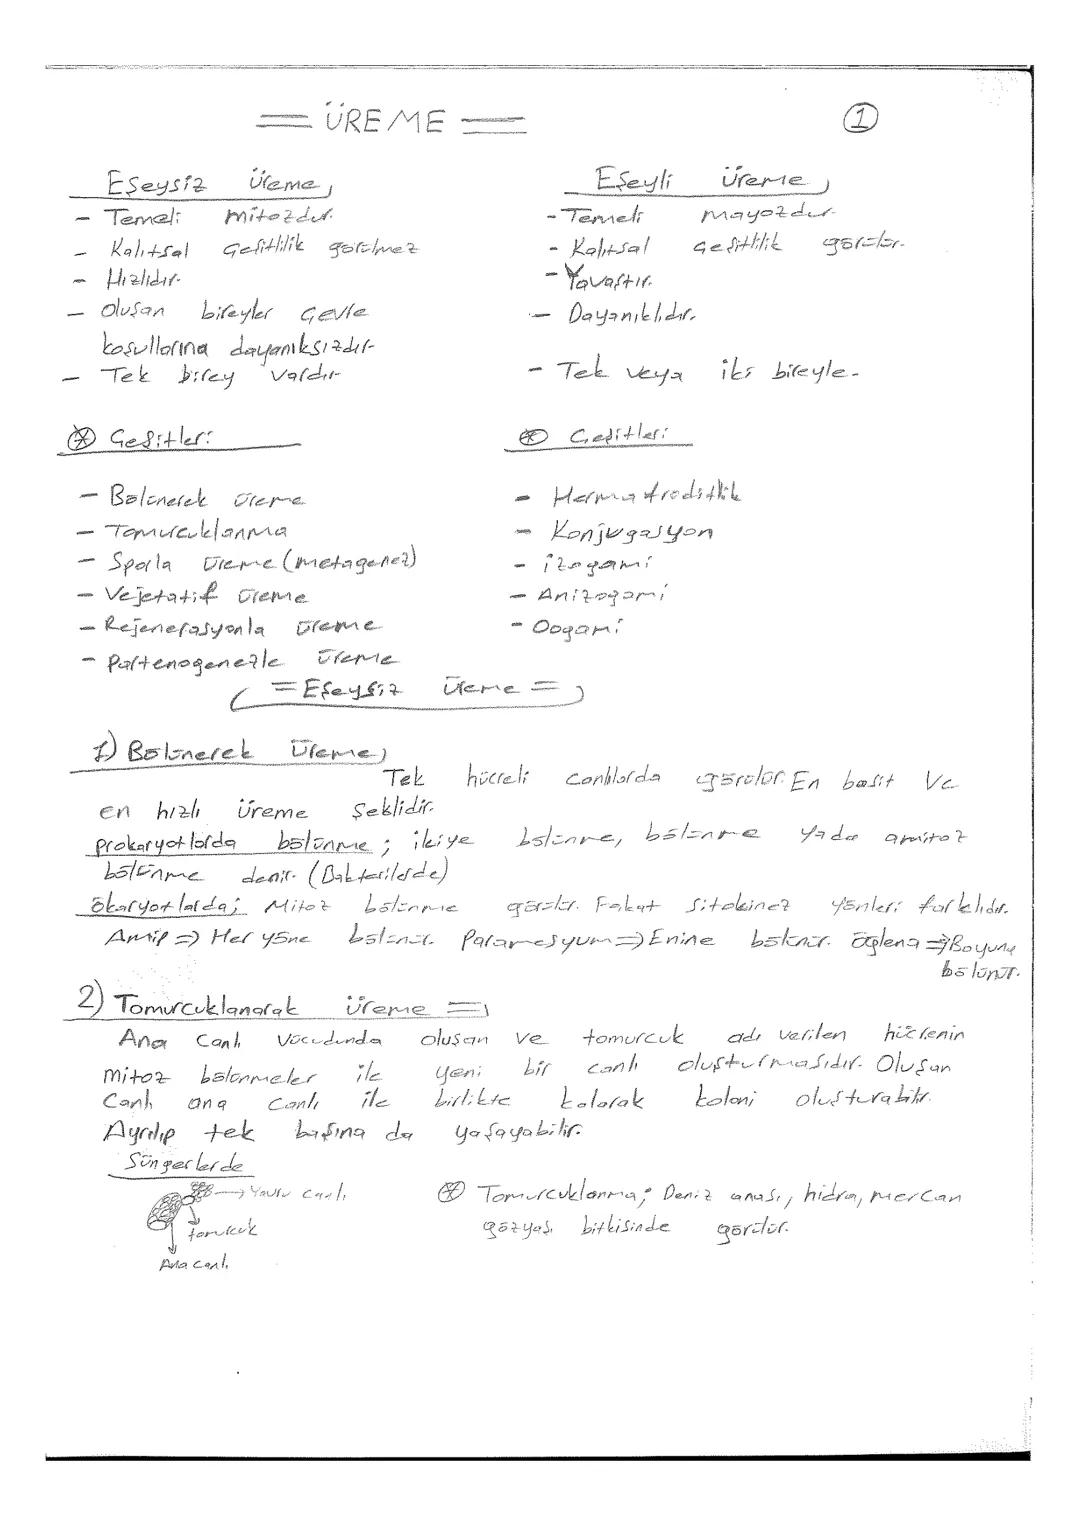 ÜREME
1
Eşeysiz Üreme,
- Temeli mitozdur.
- Kalıtsal çeşitlilik görülmez
- Hızlıdır.
- Oluşan bireyler çevre
koşullarına dayanıksızdır
- Tek birey vardır
Eşeyli Üreme,
- Temeli mayozdur.
- Kalıtsal çeşitlilik görülür.
- Yavaştır.
- Dayanıklıdır.
- Tek veya iki bireyle.
* Çeşitleri
- Bölünerek üreme
- Tomurcuklanma
- Sporla üreme (metagenez)
- Vejetatif üreme
- Rejenerasyonla üreme
- Partenogenezle üreme
* Çeşitleri
- Hermafroditlik
- Konjugasyon
- İzogami
- Anizogami
- Oogami
= Eşeysiz Üreme =
1) Bölünerek Üreme,
Tek hücreli canlılarda görülür. En basit ve
en hızlı üreme şeklidir.
prokaryotlarda bölünme; ikiye bölünme, bölünme yada amitoz
bölünme denir. (Bakterilerde)
ökaryotlarda; Mitoz bölünme görülür. Fakat sitokinez yönleri farklıdır.
Amip => Her yöne bölünür. Paramesyum => Enine bölünür. Öglena => Boyuna
bölünür.
2) Tomurcuklanarak üreme =
Ana canlı vücudunda oluşan ve tomurcuk adı verilen hücrenin
mitoz bölünmeler ile yeni bir canlı oluşturmasıdır. Oluşan
Canlı ana canlı ile birlikte kalarak koloni oluşturabilir.
Ayrılıp tek başına da yaşayabilir.
Süngerlerde
→ Yavru canlı
tomurcuk
Ana canlı
* Tomurcuklanma; Deniz anası, hidra, mercan
gözyaşı bitkisinde görülür.